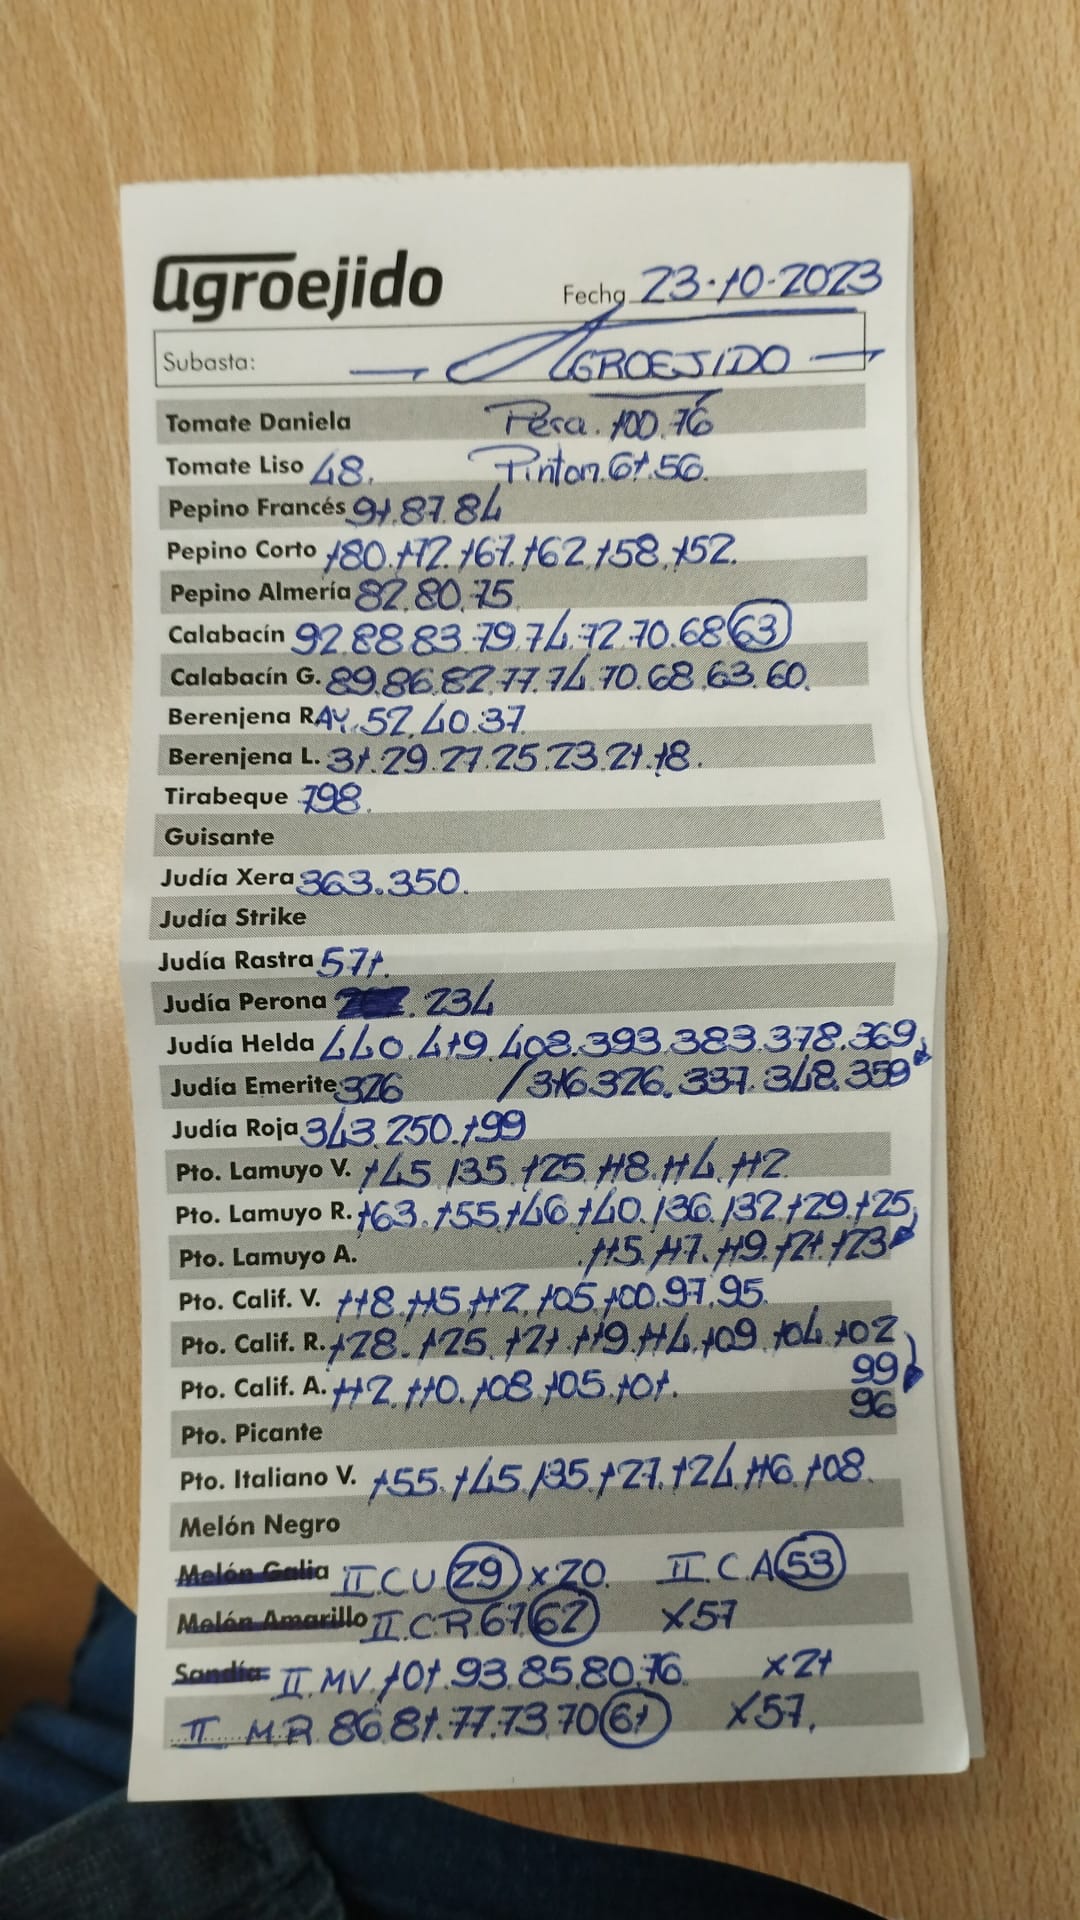 agroejido Fecha 23-10-2023
Subasta: AGROEJIDO
Tomate Daniela Pera. 100.76
Tomate Liso 48. Pinton. 61.56.
Pepino Francés 91.87.84
Pepino Corto 180.172.167.162.158.152.
Pepino Almería 82.80.75
Calabacín 92.88.83.79.74.72.70.68 63
Calabacín G. 89.86.82.77.74.70.68.63.60.
Berenjena RAY. 52.40.37
Berenjena L. 31.29.27.25.23.21.18.
Tirabeque 798.
Guisante
Judía Xera 363.350.
Judía Strike
Judía Rastra 571.
Judía Perona . 234
Judía Helda 440.419.408.393.383.378.369
Judía Emerite 326 /316.326.337.348.359
Judía Roja 343.250.199
Pto. Lamuyo V. 145.135.125.118.114.112
Pto. Lamuyo R. 163.155.146.140.136.132.129.125
Pto. Lamuyo A. .115.117.119.121.123
Pto. Calif. V. 118.115.112.105.100.97.95.
Pto. Calif. R. 128.125.121.119.114.109.104.102
99
Pto. Calif. A. 112.110.108.105.101.
96
Pto. Picante
Pto. Italiano V. 155.145.135.127.124.116.108.
Melón Negro
Melón Galia II CU 29 x20. II.CA 53
Melón Amarillo II.C.R.67 62 x57
Sandía II.MV.101.93.85.80.76. x21
II M.R. 86.81.77.73.70 61 x57.